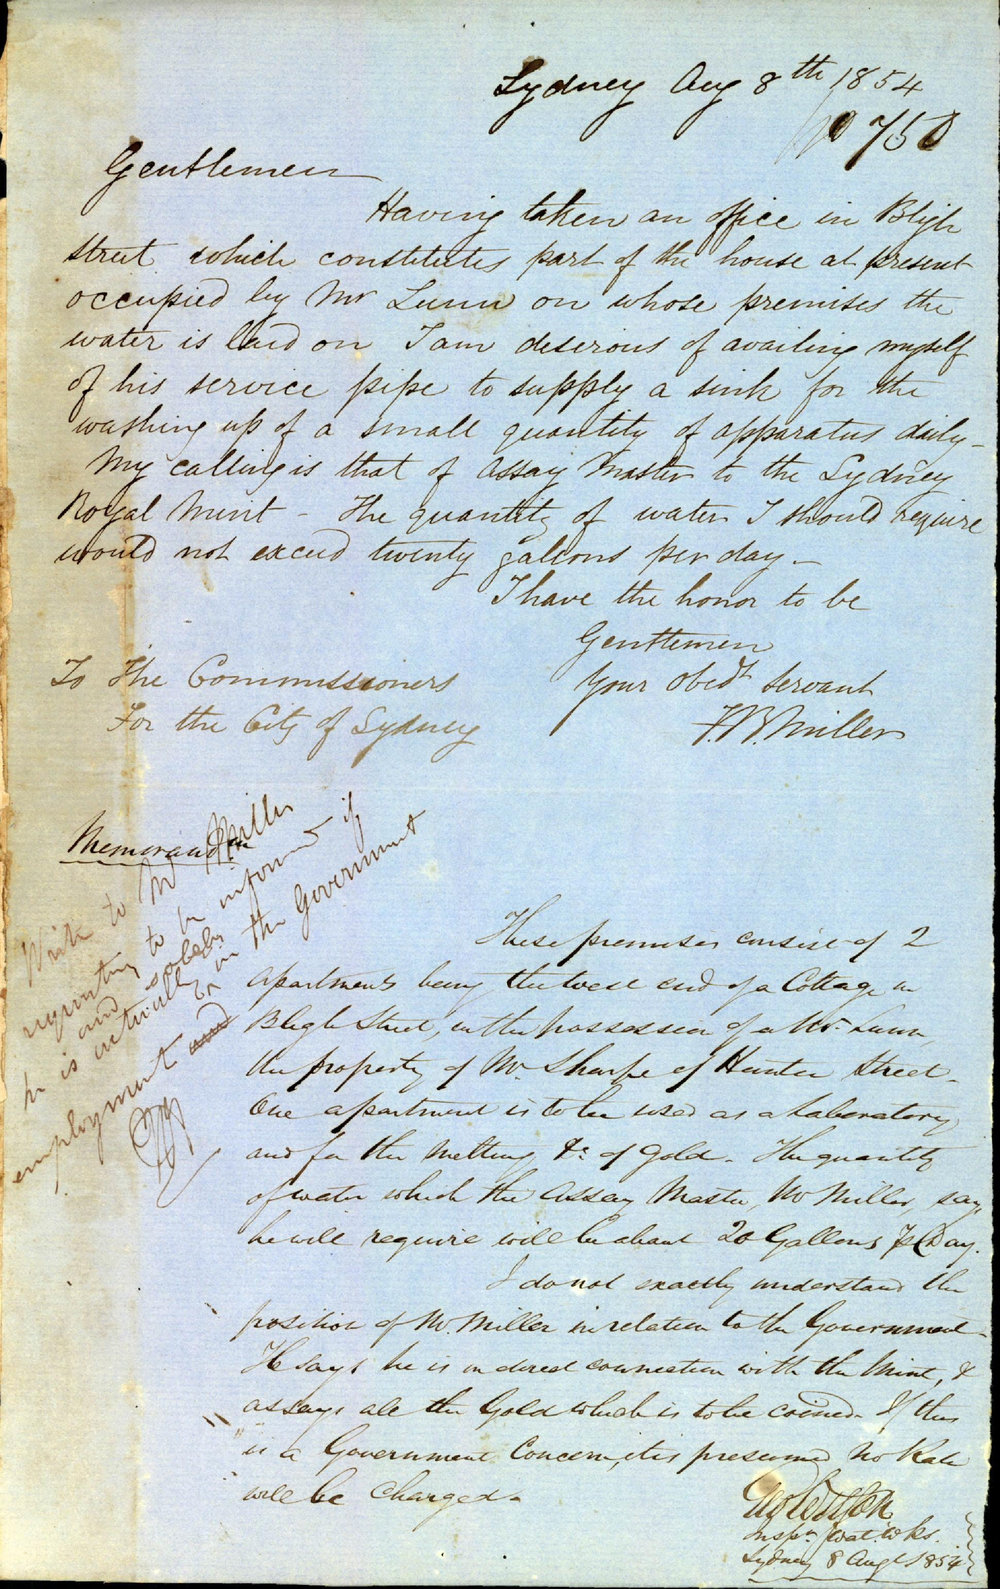 Sydney Aug 8th 1854
No 750
Gentlemen
Having taken an office in Bligh
Street which constitutes part of the house at present
occupied by Mr Lunn on whose premises the
water is laid on I am desirous of availing myself
of his service pipe to supply a sink for the
washing up of a small quantity of apparatus daily -
My calling is that of Assay Master to the Sydney
Royal Mint - The quantity of water I should require
would not exceed twenty gallons per day -
I have the honor to be
Gentlemen
Your Obedt Servant
F.B. Miller
To The Commissioners
For the City of Sydney
Memorandm
Write to Mr Miller
requesting to be informed if
he is actually and solely
employment and be in the Government
These premises consist of 2
apartments being the west end of a Cottage in
Bligh Street, in the possession of a Mr. Lunn,
the property of Mr Sharpe of Hunter Street -
One apartment is to be used as a Laboratory
and for the melting &c of Gold - The quantity
of water which the Assay Master, Mr Miller, says
he will require will be about 20 Gallons P Day.
I do not exactly understand the
position of Mr. Miller in relation to the Government -
He says he is in direct connection with the Mint, &
assays all the Gold which is to be coined - If this
is a Government Concern, it is presumed no Rate
will be charged -
Inspr Wat. Wks.
Sydney 8 Augt 1854